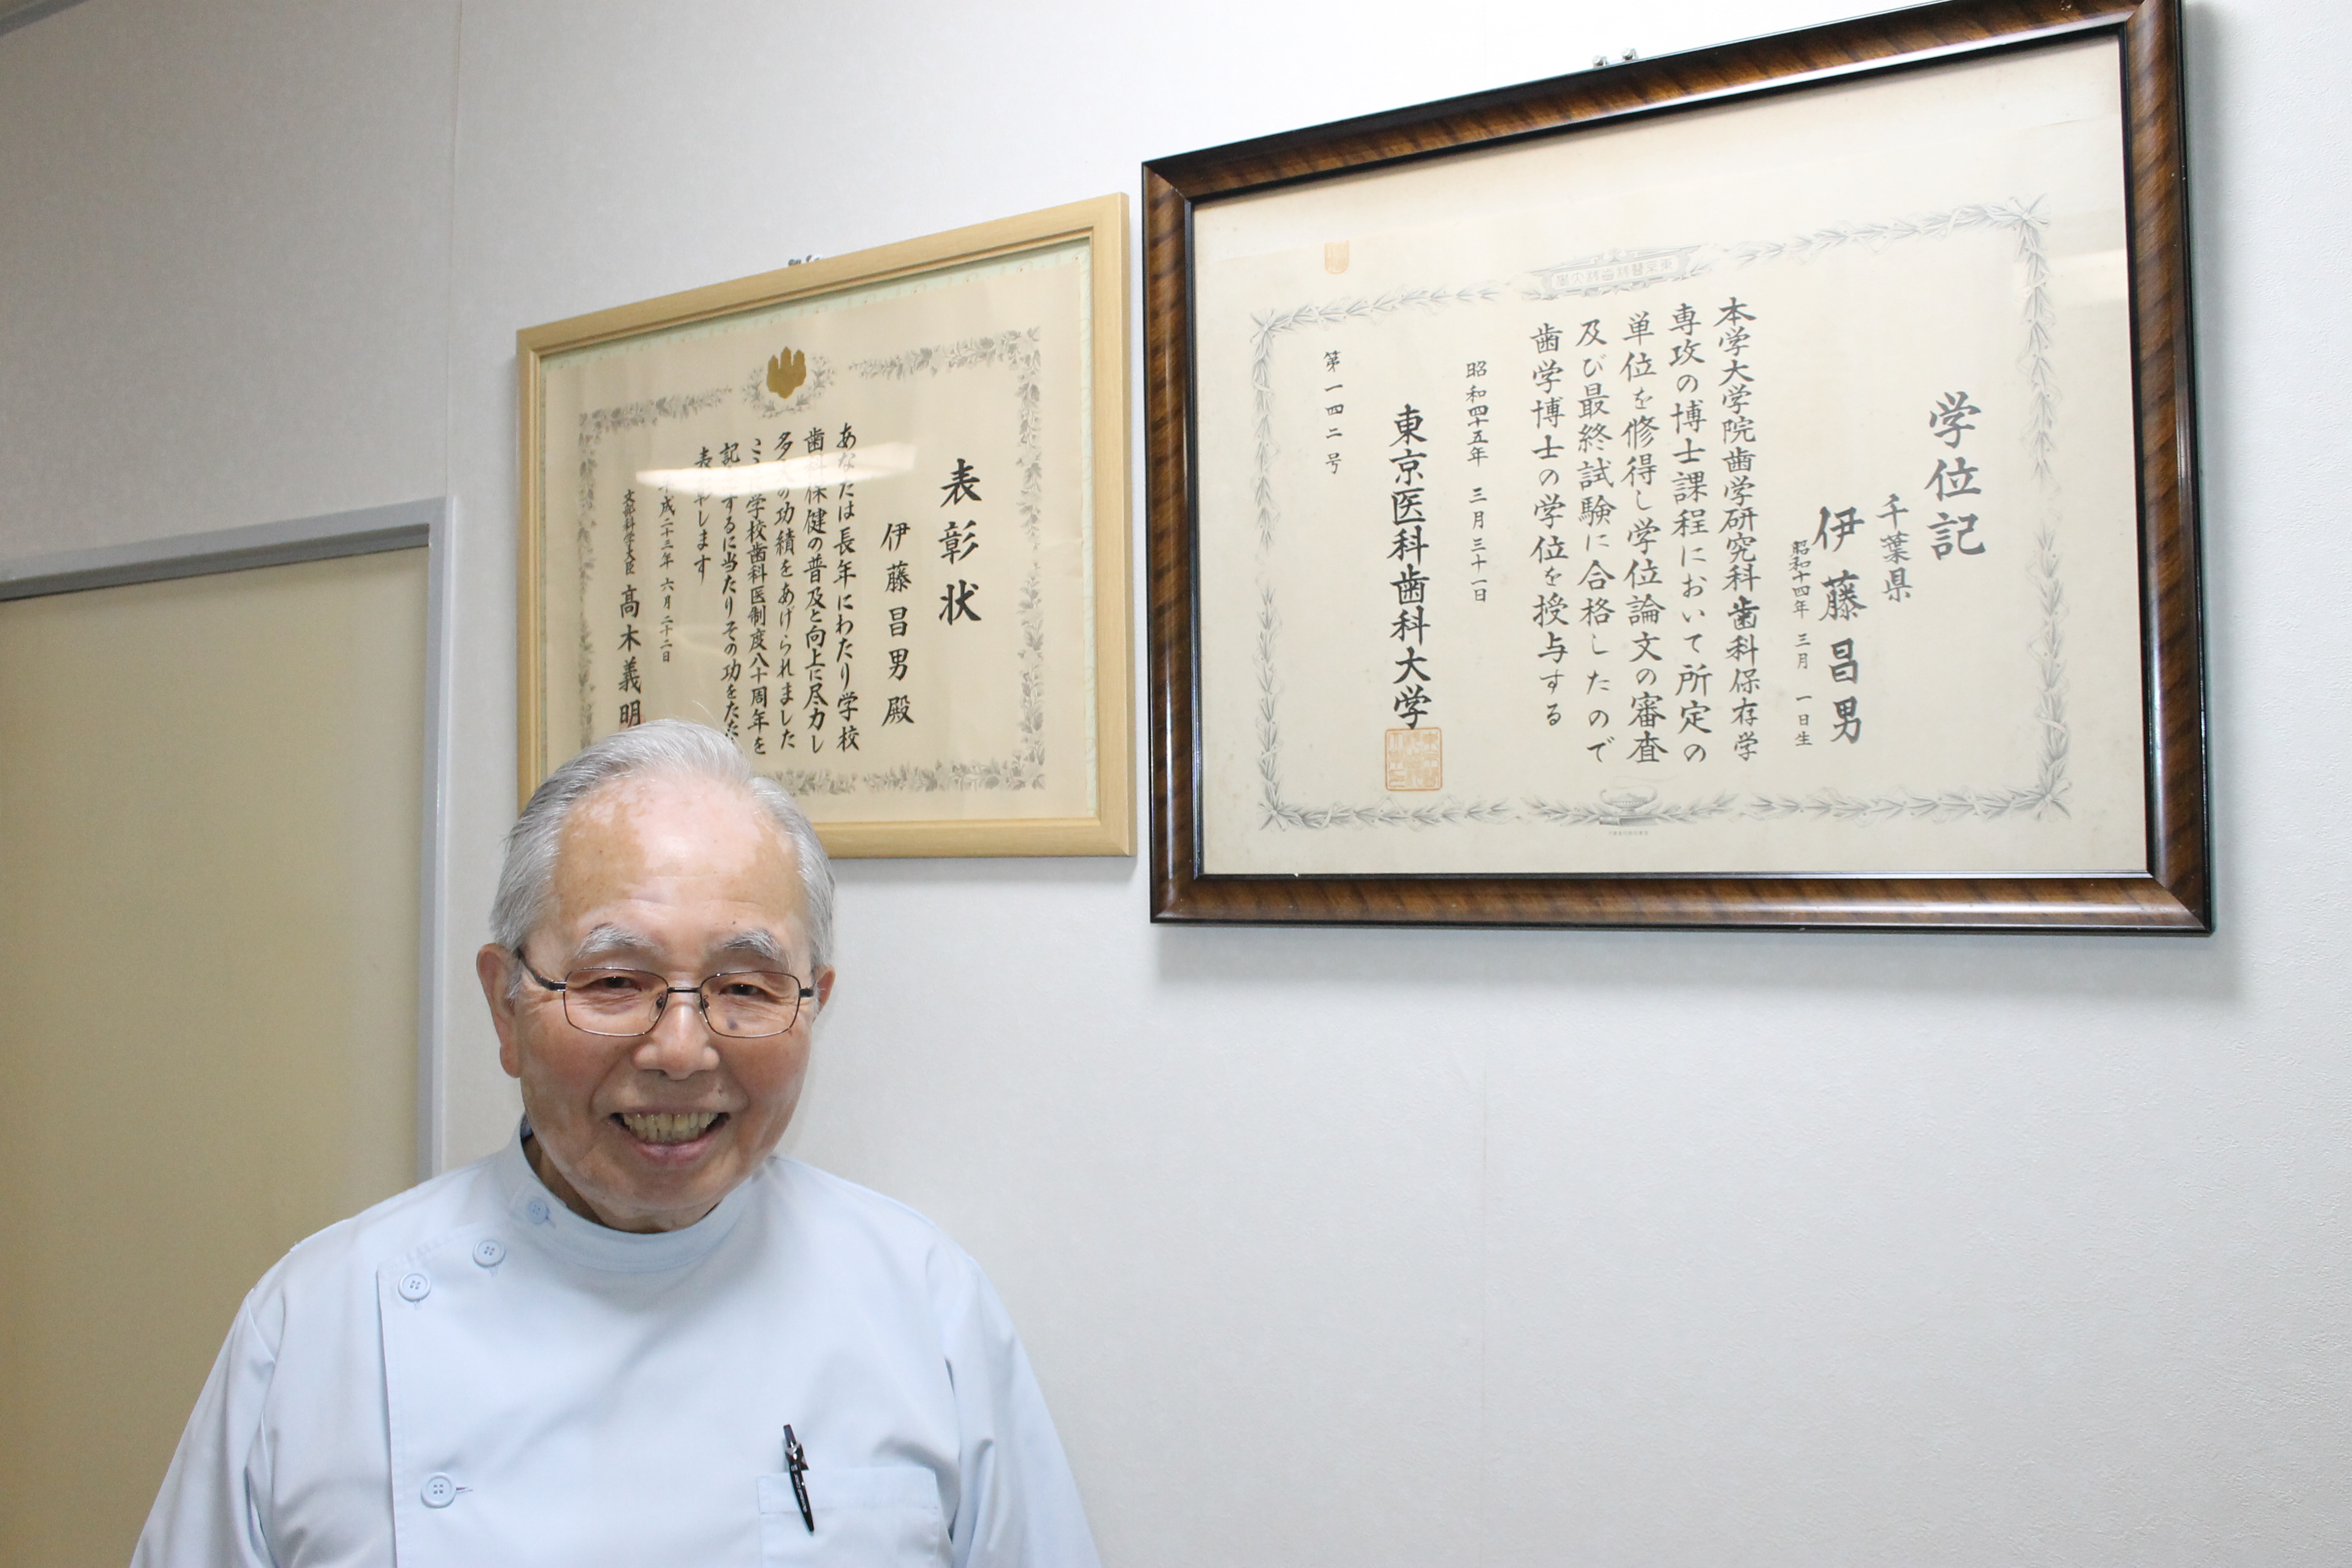 学位記
千葉県
伊藤昌男
昭和十四年 三月 一日生
本学大学院歯学研究科歯科保存学
専攻の博士課程において所定の
単位を修得し学位論文の審査
及び最終試験に合格したので
歯学博士の学位を授与する
昭和四十五年 三月三十一日
東京医科歯科大学
第一四二号
表彰状
伊藤昌男殿
あなたは長年にわたり学校
歯科保健の普及と向上に尽力し
多くの功績をあげられました
学校歯科医制度八十周年を
記 するに当たりその功をたた
表 します
成二十三年 六月二十二日
文部科学大臣 髙木義明